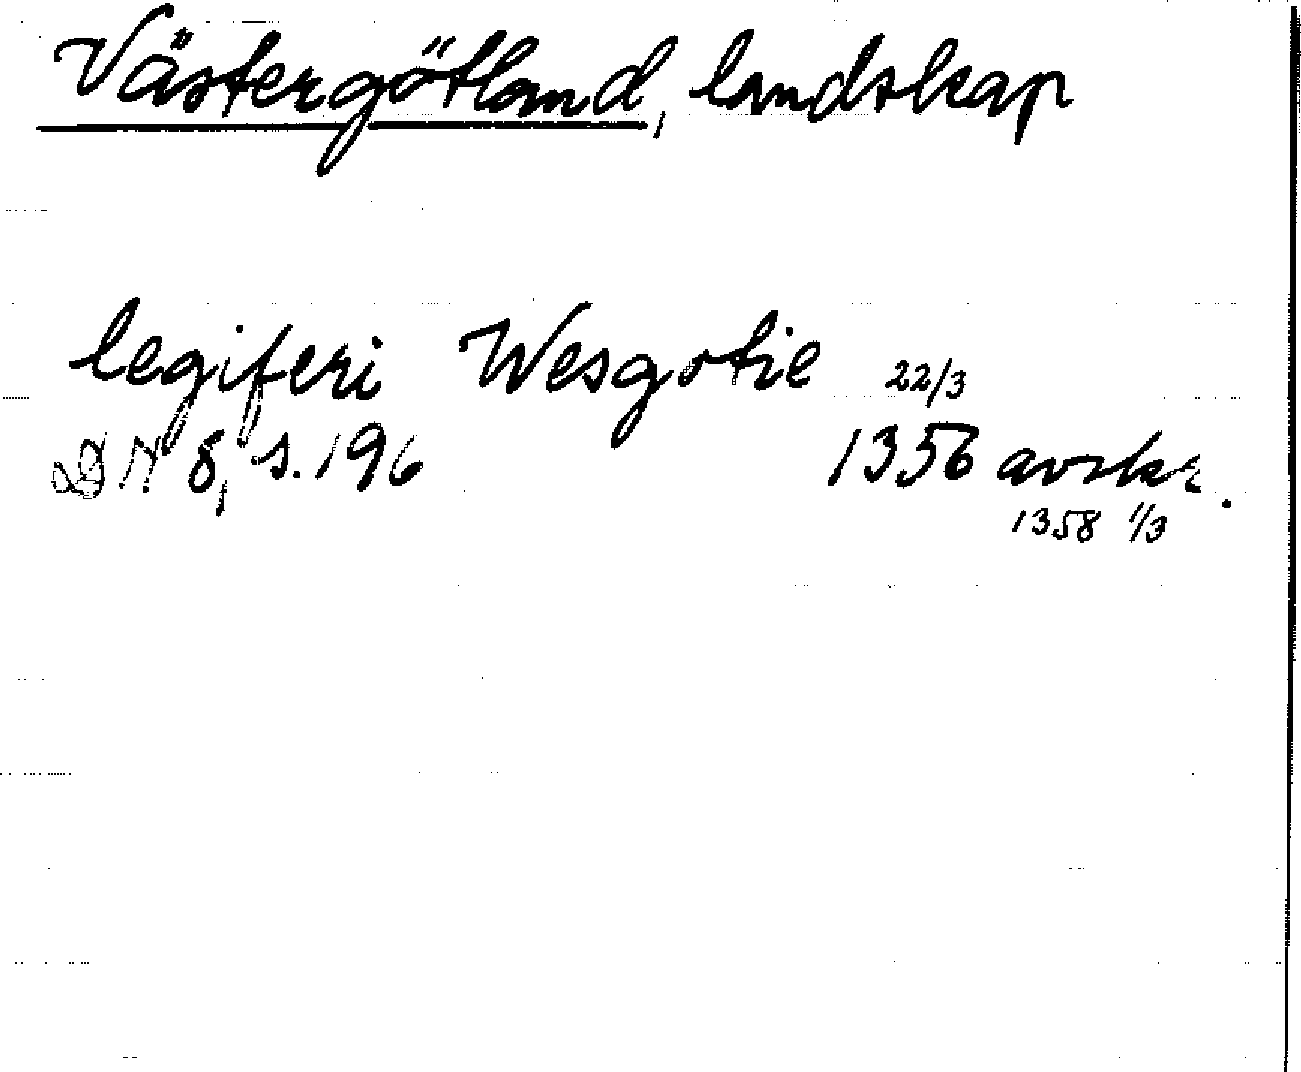 Västergötland, landskap
legiferi Wesgotie 22/3
DN 8, s. 196 1356 avskr.
1358 1/3